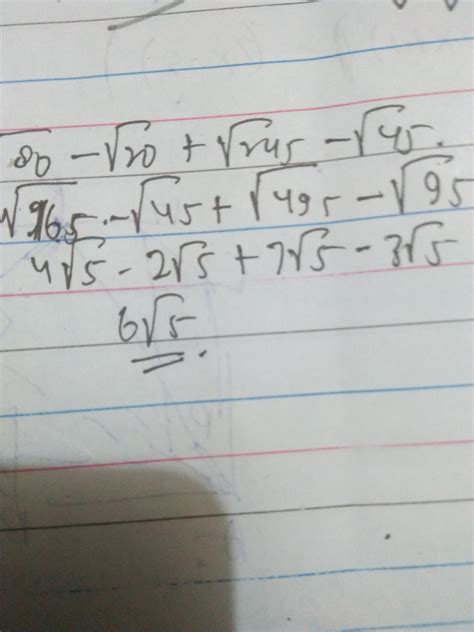 √80 - √20 + √245 - √45.
√16 5 - √4 5 + √49 5 - √9 5
4√5 - 2√5 + 7√5 - 3√5
6√5.